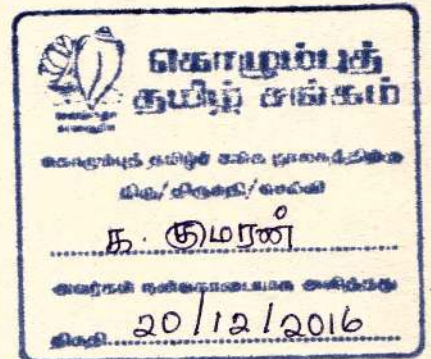 கொழும்புத்
தமிழ் சங்கம்
கொழும்புத் தமிழ்ச் சங்க நூலகத்திற்கு
திரு/திருமதி/செல்வி
க. குமரன்
அவர்கள் நன்கொடையாக அளித்தது
திகதி 20/12/2016